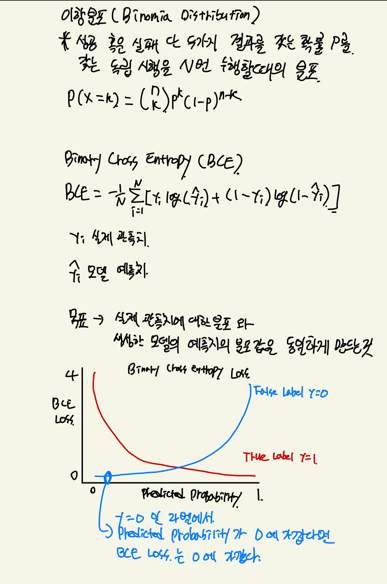 이항분포 (Binomia Distribution)
* 성공 혹은 실패 단 두가지 결과를 갖는 확률 P를
갖는 독립 시행을 N번 수행할때의 분포
P(X=k) = (n k) p^k (1-p)^{n-k}
Binary Cross Entropy (BCE)
BCE = -1/N Σ_{i=1}^{N} [Y_i log(Ŷ_i) + (1-Y_i) log(1-Ŷ_i)]
Y_i 실제 관측치.
Ŷ_i 모델 예측치.
목표 → 실제 관측치에 대한 분포 와
생성한 모델의 예측치의 분포 값을 동일하게 만드는것
4
Binary Cross Entropy Loss
False Label Y=0
BCE
Loss.
True Label Y=1.
0
0
Predicted Probability
1.
Y=0 인 라벨에서.
→ Predicted Probability가 0에 가깝다면
BCE Loss.는 0에 가깝다.